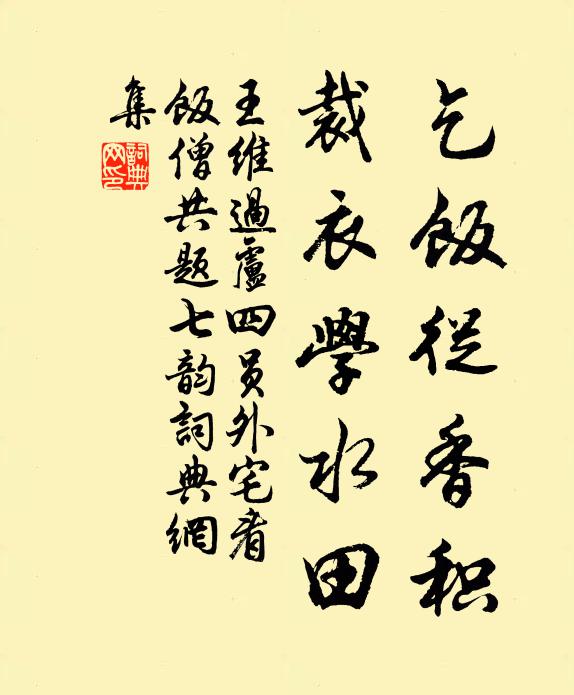 乞飯從香积
裁衣學水田
王維過盧四員外宅看
飯僧共题七韵詞典網
集
詞典
网印